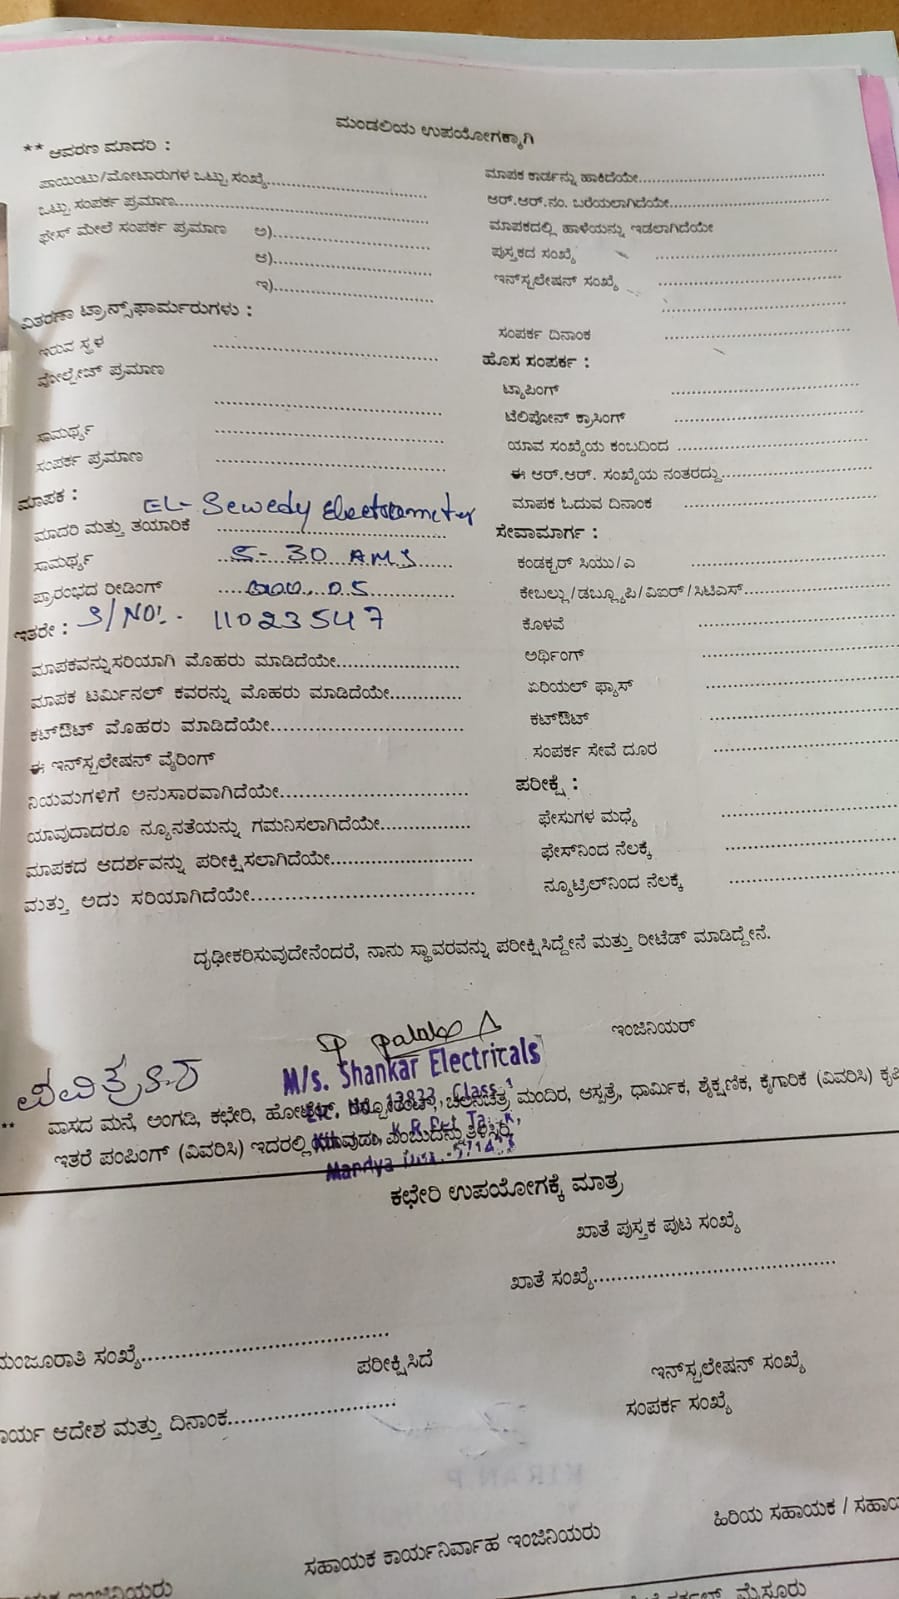 ಮಂಡಲಿಯ ಉಪಯೋಗಕ್ಕಾಗಿ
** ಆವರಣ ಮಾದರಿ :
ಪಾಯಿಂಟು/ಮೋಟಾರುಗಳ ಒಟ್ಟು ಸಂಖ್ಯೆ..............................
ಒಟ್ಟು ಸಂಪರ್ಕ ಪ್ರಮಾಣ..............................
ಫೇಸ್ ಮೇಲೆ ಸಂಪರ್ಕ ಪ್ರಮಾಣ ಅ)..............................
ಆ)..............................
ಇ)..............................
ವಿತರಣಾ ಟ್ರಾನ್ಸ್‌ಫಾರ್ಮರುಗಳು :
ಇರುವ ಸ್ಥಳ ..............................
ವೋಲ್ಟೇಜ್ ಪ್ರಮಾಣ
..............................
ಸಾಮರ್ಥ್ಯ ..............................
ಸಂಪರ್ಕ ಪ್ರಮಾಣ ..............................
ಮಾಪಕ :
EL- Sewedy Electrometer
ಮಾದರಿ ಮತ್ತು ತಯಾರಿಕೆ ..............................
ಸಾಮರ್ಥ್ಯ 5-30 AMS
ಪ್ರಾರಂಭದ ರೀಡಿಂಗ್ 05
ಇತರೇ : S/NO:- 11023547
ಮಾಪಕವನ್ನು ಸರಿಯಾಗಿ ಮೊಹರು ಮಾಡಿದೆಯೇ....................
ಮಾಪಕ ಟರ್ಮಿನಲ್ ಕವರನ್ನು ಮೊಹರು ಮಾಡಿದೆಯೇ............
ಕಟ್‌ಔಟ್ ಮೊಹರು ಮಾಡಿದೆಯೇ..............................
ಈ ಇನ್‌ಸ್ಟಲೇಷನ್ ವೈರಿಂಗ್
ನಿಯಮಗಳಿಗೆ ಅನುಸಾರವಾಗಿದೆಯೇ..............................
ಯಾವುದಾದರೂ ನ್ಯೂನತೆಯನ್ನು ಗಮನಿಸಲಾಗಿದೆಯೇ...............
ಮಾಪಕದ ಆದರ್ಶವನ್ನು ಪರೀಕ್ಷಿಸಲಾಗಿದೆಯೇ.......................
ಮತ್ತು ಅದು ಸರಿಯಾಗಿದೆಯೇ....................................
ಮಾಪಕ ಕಾರ್ಡನ್ನು ಹಾಕಿದೆಯೇ..............................
ಆರ್.ಆರ್.ನಂ. ಬರೆಯಲಾಗಿದೆಯೇ..............................
ಮಾಪಕದಲ್ಲಿ ಹಾಳೆಯನ್ನು ಇಡಲಾಗಿದೆಯೇ
ಪುಸ್ತಕದ ಸಂಖ್ಯೆ ..............................
ಇನ್‌ಸ್ಟಲೇಷನ್ ಸಂಖ್ಯೆ ..............................
..............................
ಸಂಪರ್ಕ ದಿನಾಂಕ ..............................
ಹೊಸ ಸಂಪರ್ಕ :
ಟ್ಯಾಪಿಂಗ್ ..............................
ಟೆಲಿಫೋನ್ ಕ್ರಾಸಿಂಗ್ ..............................
ಯಾವ ಸಂಖ್ಯೆಯ ಕಂಬದಿಂದ ..............................
ಈ ಆರ್.ಆರ್. ಸಂಖ್ಯೆಯ ನಂತರದ್ದು........................
ಮಾಪಕ ಓದುವ ದಿನಾಂಕ ..............................
ಸೇವಾಮಾರ್ಗ :
ಕಂಡಕ್ಟರ್ ಸಿಯು/ಎ ..............................
ಕೇಬಲ್ಲು/ಡಬ್ಲ್ಯೂಪಿ/ವಿಐರ್/ಸಿಟಿಎಸ್........................
ಕೊಳವೆ ..............................
ಅರ್ಥಿಂಗ್ ..............................
ಏರಿಯಲ್ ಫ್ಯೂಸ್ ..............................
ಕಟ್‌ಔಟ್ ..............................
ಸಂಪರ್ಕ ಸೇವೆ ದೂರ ..............................
ಪರೀಕ್ಷೆ :
ಫೇಸುಗಳ ಮಧ್ಯೆ ..............................
ಫೇಸ್‌ನಿಂದ ನೆಲಕ್ಕೆ ..............................
ನ್ಯೂಟ್ರಿಲ್‌ನಿಂದ ನೆಲಕ್ಕೆ ..............................
ದೃಢೀಕರಿಸುವುದೇನೆಂದರೆ, ನಾನು ಸ್ಥಾವರವನ್ನು ಪರೀಕ್ಷಿಸಿದ್ದೇನೆ ಮತ್ತು ರೀಟೆಡ್ ಮಾಡಿದ್ದೇನೆ.
ಇಂಜಿನಿಯರ್
M/s. Shankar Electricals
** ವಾಸದ ಮನೆ, ಅಂಗಡಿ, ಕಛೇರಿ, ಹೋಟೆಲ್, ರೆಸ್ಟೋರೆಂಟ್, ಚಲನಚಿತ್ರ ಮಂದಿರ, ಆಸ್ಪತ್ರೆ, ಧಾರ್ಮಿಕ, ಶೈಕ್ಷಣಿಕ, ಕೈಗಾರಿಕೆ (ವಿವರಿಸಿ) ಕೃಷಿ
ಇತರೆ ಪಂಪಿಂಗ್ (ವಿವರಿಸಿ) ಇದರಲ್ಲಿ ಯಾವುದು ಎಂಬುದನ್ನು ತಿಳಿಸಿರಿ
Class 1
K.R.Pet
Mandya
ಕಛೇರಿ ಉಪಯೋಗಕ್ಕೆ ಮಾತ್ರ
ಖಾತೆ ಪುಸ್ತಕ ಪುಟ ಸಂಖ್ಯೆ
ಖಾತೆ ಸಂಖ್ಯೆ........................................
ಮಂಜೂರಾತಿ ಸಂಖ್ಯೆ........................................
ಪರೀಕ್ಷಿಸಿದೆ
ಇನ್‌ಸ್ಟಲೇಷನ್ ಸಂಖ್ಯೆ
ಕಾರ್ಯ ಆದೇಶ ಮತ್ತು ದಿನಾಂಕ..............................
ಸಂಪರ್ಕ ಸಂಖ್ಯೆ
ಹಿರಿಯ ಸಹಾಯಕ / ಸಹಾಯ
ಸಹಾಯಕ ಕಾರ್ಯನಿರ್ವಾಹ ಇಂಜಿನಿಯರು
ಇಂಜಿನಿಯರು
ಮೈಸೂರು